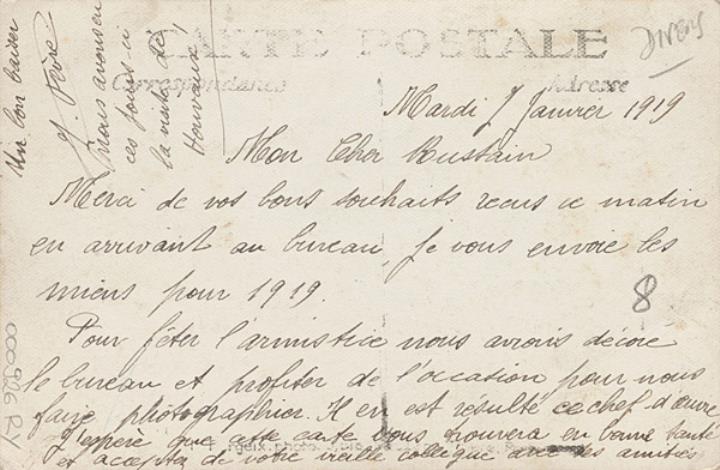 CARTE POSTALE
Correspondance
Adresse
DIVERS
Mardi 7 Janvier 1919
Mon Cher Roustain
Merci de vos bons souhaits reçus ce matin
en arrivant au bureau, je vous envoie les
miens pour 1919.
8
Pour fêter l'armistice nous avons décoré
le bureau et profiter de l'occasion pour nous
faire photographier. Il en est résulté ce chef d'œuvre
J'espère que cette carte vous trouvera en bonne santé
et acceptez de votre vieille collègue avec ses amitiés
Un bon baiser
J. Fèvre
Nous avons eu
ces jours-ci
la visite de
000926 RV
photo